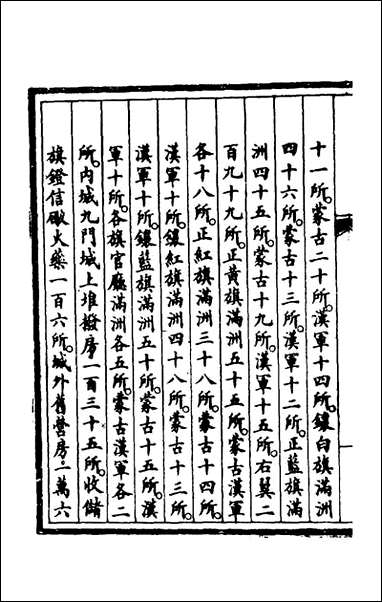 十一所。蒙古二十所。漢軍十四所。鑲白旗滿洲
四十六所。蒙古十三所。漢軍十二所。正藍旗滿
洲四十五所。蒙古十九所。漢軍十五所。右翼二
百九十九所。正黃旗滿洲五十五所。蒙古漢軍
各十八所。正紅旗滿洲三十八所。蒙古十四所。
漢軍十所。鑲紅旗滿洲四十八所。蒙古十三所。
漢軍十所。鑲藍旗滿洲五十所。蒙古十五所。漢
軍十所。各旗官廳滿洲各五所。蒙古漢軍各二
所。內城九門城上堆撥房一百三十五所。收儲
旗鐙信礮火藥一百六所。城外舊營房。一萬六